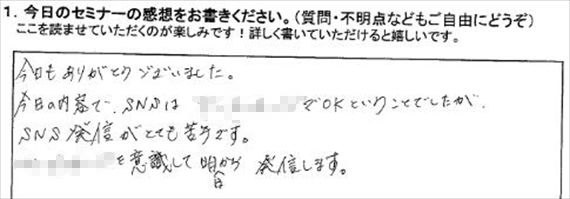 1. 今日のセミナーの感想をお書きください。(質問・不明点などもご自由にどうぞ)
ここを読ませていただくのが楽しみです!詳しく書いていただけると嬉しいです。
今日もありがとうございました。
今日の内容で、SNSは でOKということでしたが、
SNS発信がとても苦手です。
を意識して明日から発信します。